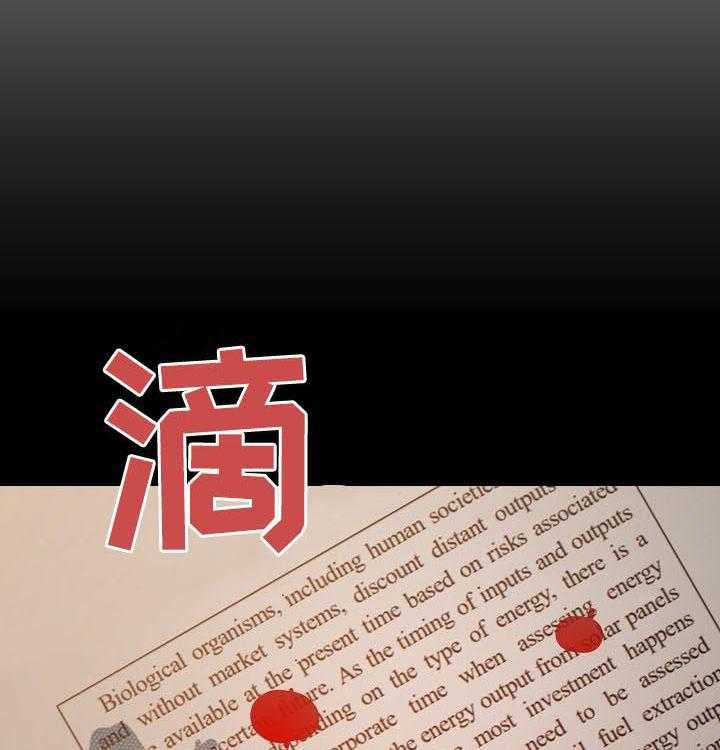 滴
Biological organisms, including human
and without market systems, discount distant outputs
available at the present time based on risks associated
future. As the timing of inputs and outputs
on the type of energy, there is a
time when assessing energy
the energy output from solar panels
most investment happens
need to be assessed
fuel extraction